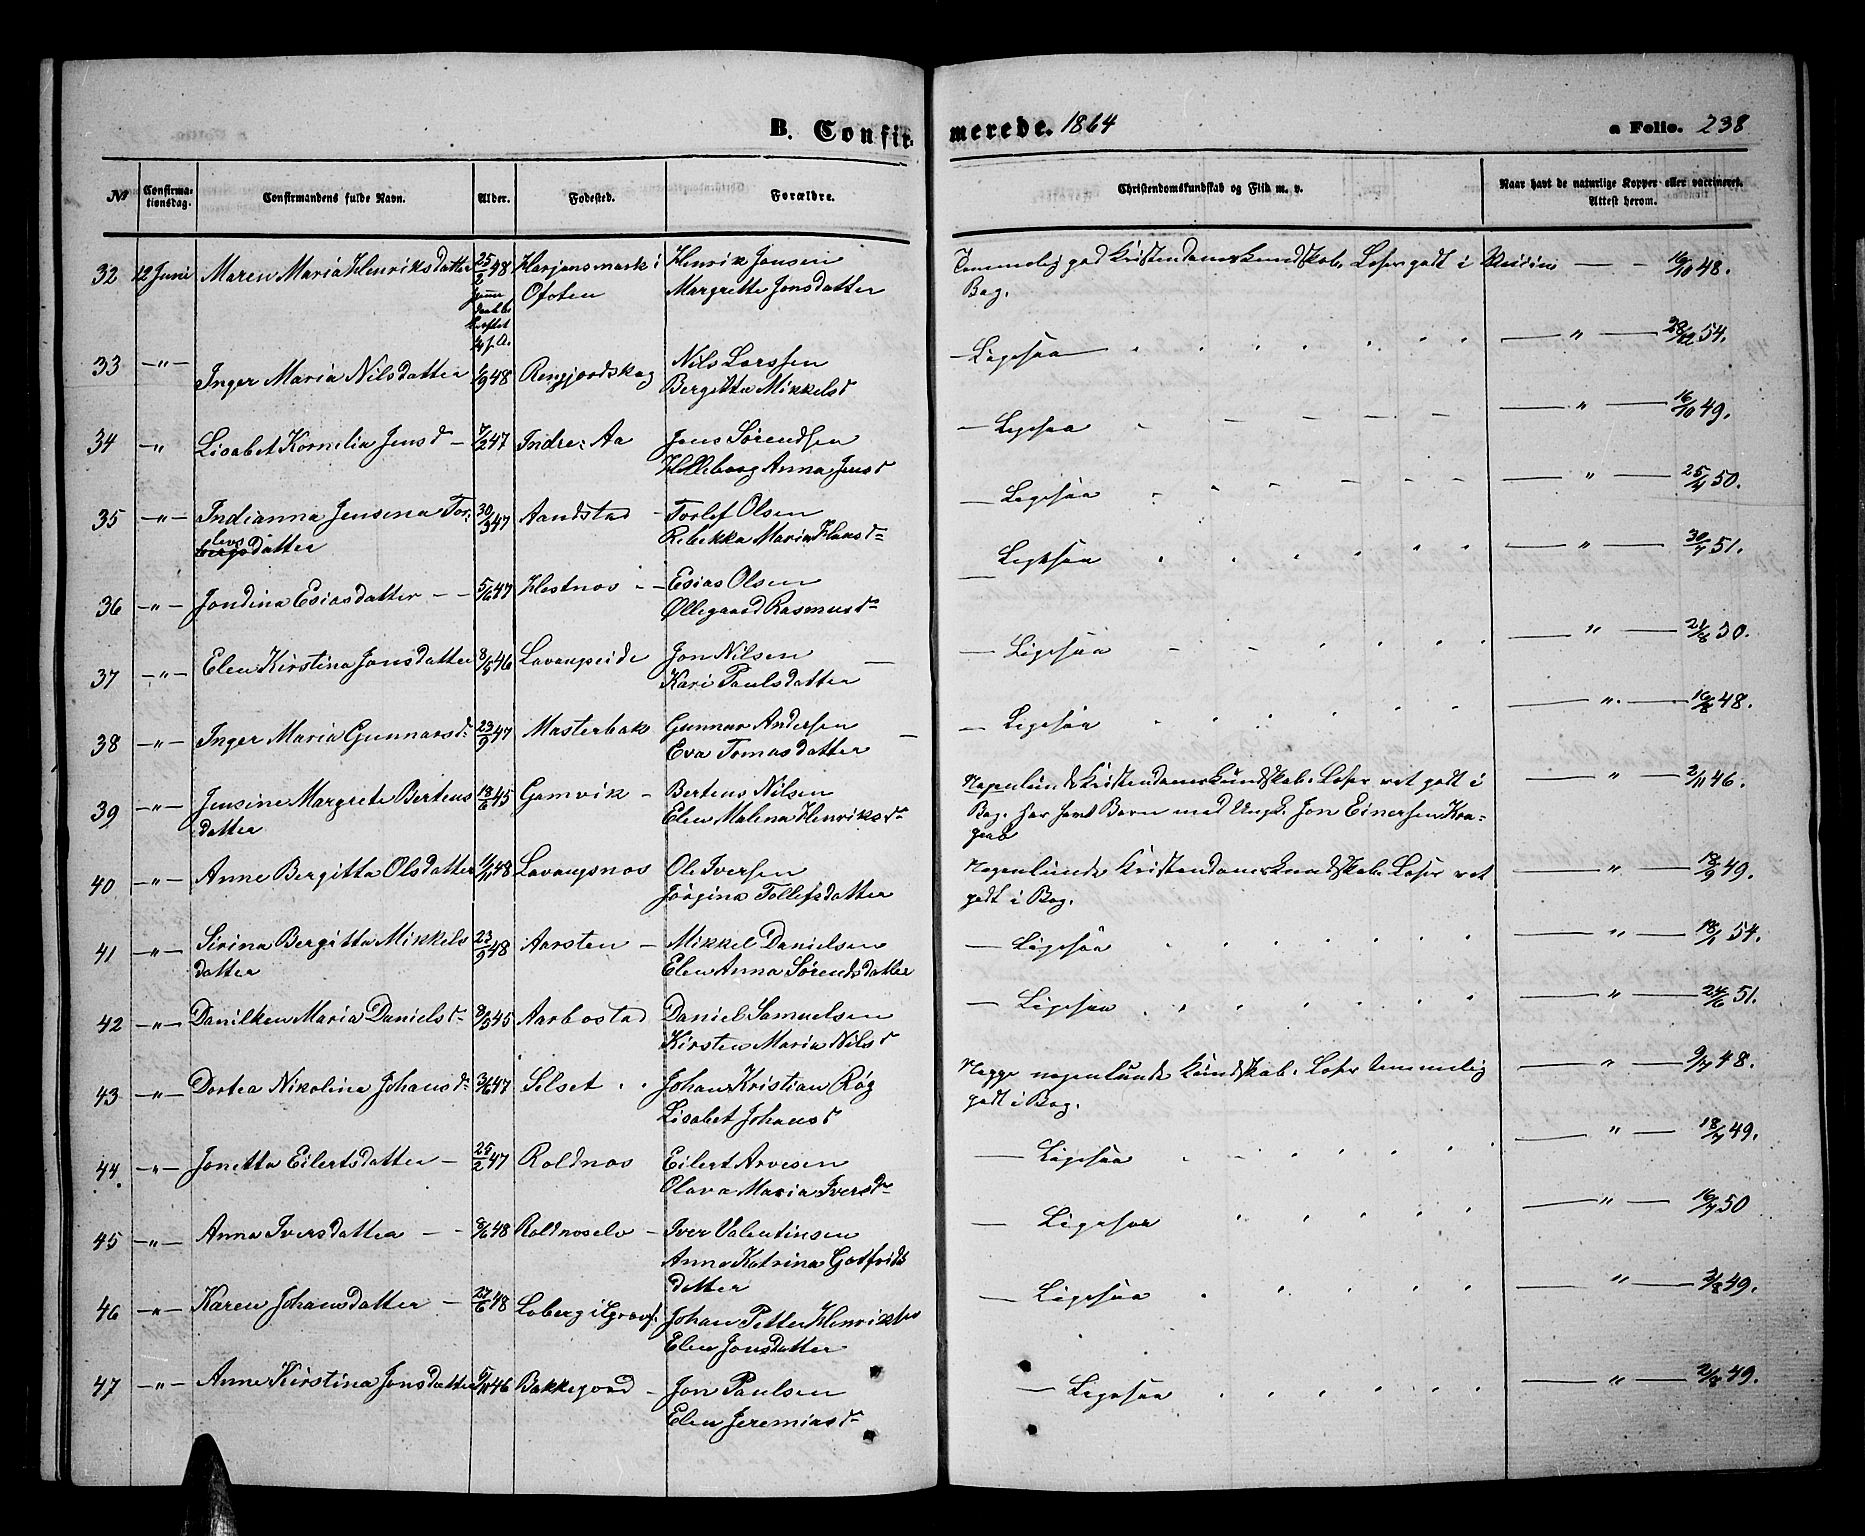 B. Confirmerede. 1864
a Folio. 238
№ Confirmationsdag. Confirmandens fulde Navn. Alder. Fødested. Forældre. Christendomskundskab og Flid m. v. Naar havt de naturlige Kopper eller vaccineret. Attest herom.
32 12 Juni Maren Maria Henriksdatter 25/2 48 i Henrik Jonsen Temmelig god Kristendomskundskab. Læser godt i 16/10 48.
Ofoten Margrethe Jonsdatter Bog.
33 —"— Inger Maria Nilsdatter 1/9 48 Nils Larssen — Ligesaa — " — 54.
Bergitta Mikkelsd
34 —"— Lisabet Kornelia Jensd — 7/2 47 Indre-Aa Jens Sørendsen — Ligesaa — " — 16/10 49.
Anna Jensd
35 —"— Indianna Jensena Tor- 30/3 47 Aandstad Torlef Olsen — Ligesaa — " — 25/7 50.
levsdatter Rebekka Maria Hansd
36 —"— Jondina Esiasdatter — 5/6 47 Hestnes — Esias Olsen — Ligesaa — " — 30/7 51.
Øllegaard Rasmusd
37 —"— Elen Kirstina Jonsdatter 46 Lavangseide Jon Nilsen — Ligesaa — " — 21/8 50.
Kari Paulsdatter
38 —"— Inger Maria Gunnarsd 23/9 47 Masterbak Gunnar Andersen — Ligesaa — " — 16/8 48.
Eva Tomasdatter
39 —"— Jensine Margrete Bertens 13/6 45 Gamvik — Bertens Nilsen Nogenlunde Kristendomskundskab. Læser ret godt i — " — 2/11 46.
datter Elen Malena Henriksd Bog. Har havt Barn med Ungk. Jon Einersen
40 —"— Anne Bergitta Olsdatter 1/11 48 Lavangsnes Ole Iversen Nogenlunde Kristendomskundskab. Læser ret — " — 18/9 49.
Jørgina Tollefsdatter godt i Bog.
41 —"— Sirina Bergitta Mikkels 23/9 48 Aarsten — Mikkel Danielsen — Ligesaa — " — 54.
datter Elen Anna Sørendsdatter
42 —"— Danilken Maria Danielsd 45 Aarbostad Daniel Samuelsen — Ligesaa — " — 24/6 51.
Kirsten Maria Nilsd
43 —"— Dortea Nikolina Johansd 3/6 47 Selset Johan Kristian Røg Neppe nogenlunde Kundskab. Læser temmelig — " — 9/7 48.
Lisabet Johansd godt i Bog.
44 —"— Jonetta Eilertsdatter — 25/2 47 Roldnes Eilert Arvesen — Ligesaa — " — 18/7 49.
Olava Maria Iversd
45 —"— Anna Iversdatter — 8/6 48 Roldneselv — Iver Valentinsen — Ligesaa — " — 16/7 50
Anne Katrina Gotfrids
datter
46 —"— Karen Johansdatter — 27/6 48 Johan Petter Henriksen — Ligesaa — " — 3/8 49.
Elen Jonsdatter
47 —"— Anne Kirstina Jonsdatter 5/11 46 Bakkejord — Jon Paulsen — Ligesaa — " — 2/8 49.
Elen Jeremiasd